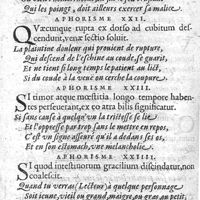 Qui les poingt, doit ailleurs exercer sa malice.
APHORISME XXII.
QVæcunque rupta ex dorso ad cubitum des-
cendunt, venæ sectio soluit.
La plaintine douleur qui prouient de rupture,
Qui descend de l'eschine au coude, se guarit,
Et ne tient si long temps le patient au lict,
Si du coude à la veue on cerche la coupure.
APHORISME XXIII.
SI timor atque mœstitia longo tempore habén-
tes perseuerant, ex eo atra bilis significatur.
Si sans cause à quelqu'vn la tristesse se lie
Et l'oppresse par trop sans le mettre en repos,
C'est vn signe asseuré qu'il a dedans les os,
Et en son estomach, vne melancholie.
APHORISME XXIIII.
SI quod intestinorum gracilium discindatur, non
coalescit.
Quand tu verras (Lecteur) à quelque personnage
Soit ieune, vieil ou grand, maigre, ou gras, ou petit,